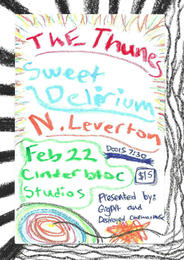 THE Thunes
Sweet
Delirium
N. Leverton
Feb 22
Doors 7:30
Cinderbloc
Studios
$15
Presented by:
GigPit and
Destroyed